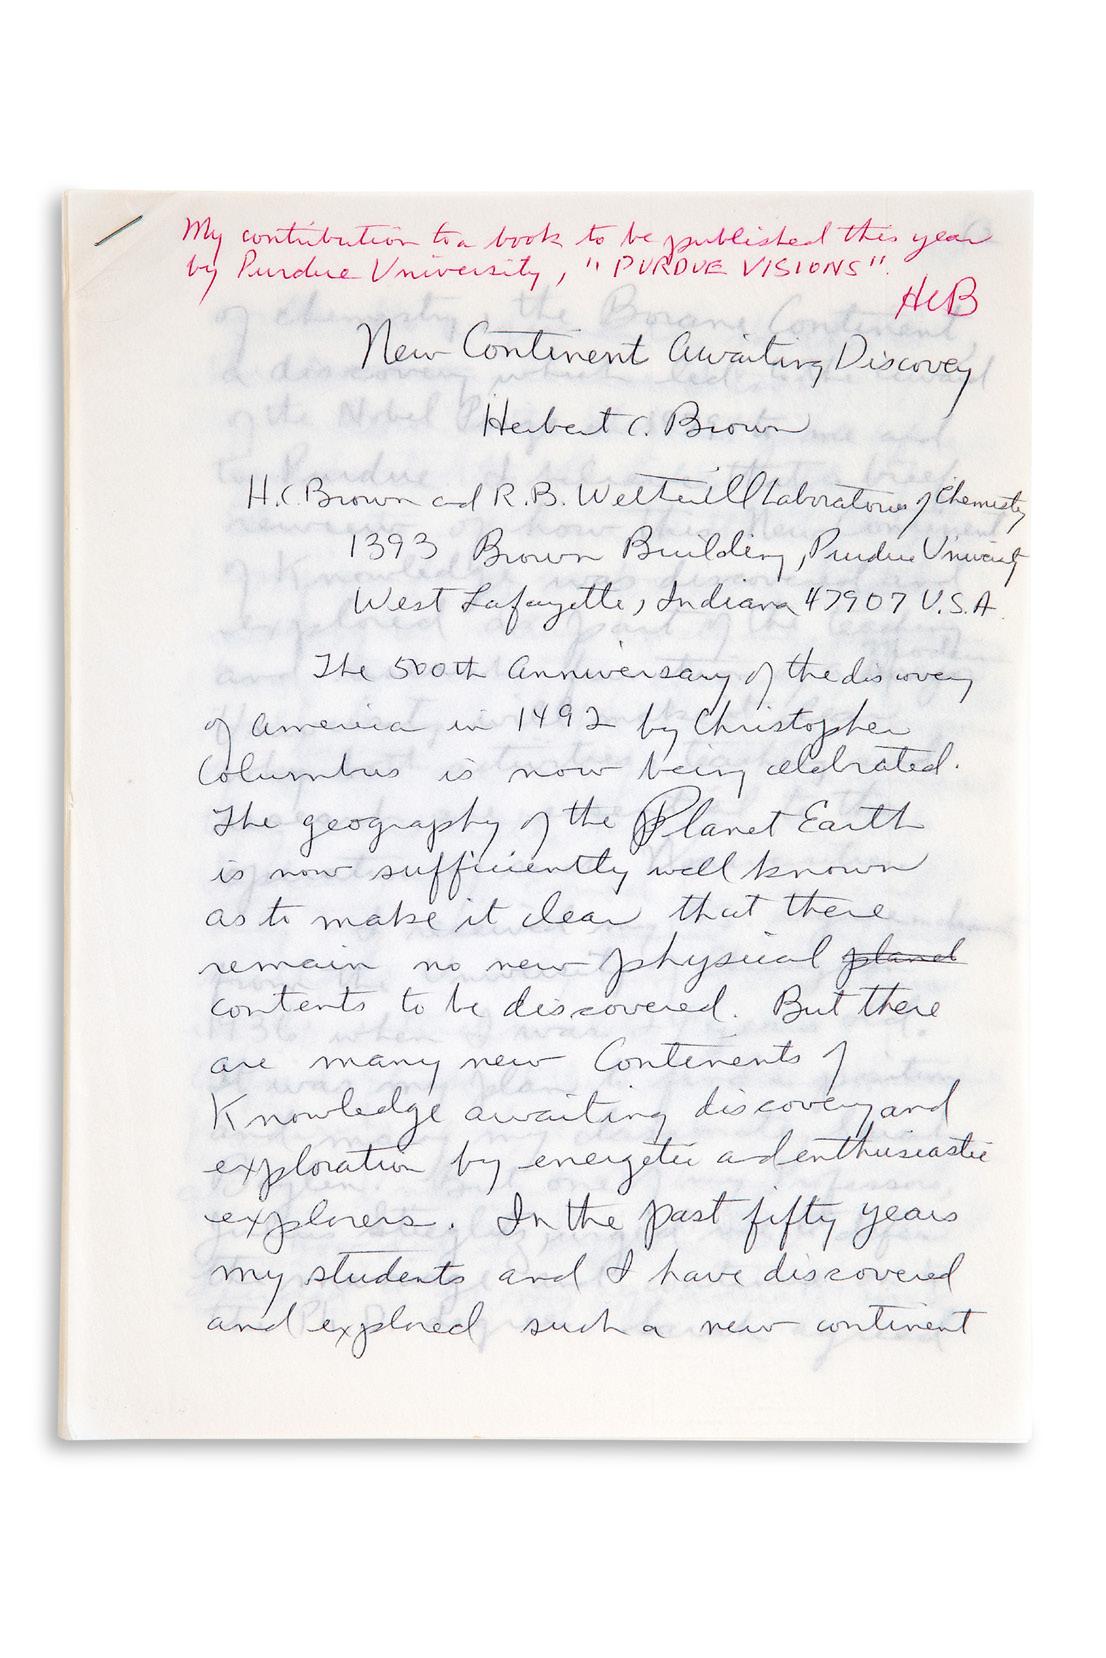 My contribution to a book to be published this year
by Purdue University, "PURDUE VISIONS".
HCB
New Continent Awaiting Discovey
Herbert C. Brown
H.C. Brown and R.B. Wetherill Laboratories of Chemistry
1393 Brown Building, Purdue University
West Lafayette, Indiana 47907 U.S.A.
The 500th Anniversary of the discovery
of America in 1492 by Christopher
Columbus is now being celebrated.
The geography of the Planet Earth
is now sufficiently well known
as to make it clear that there
remain no new physical
contents to be discovered. But there
are many new Continents of
Knowledge awaiting discovery and
exploration by energetic and enthusiastic
explorers. In the past fifty years
my students and I have discovered
and explored such a new continent